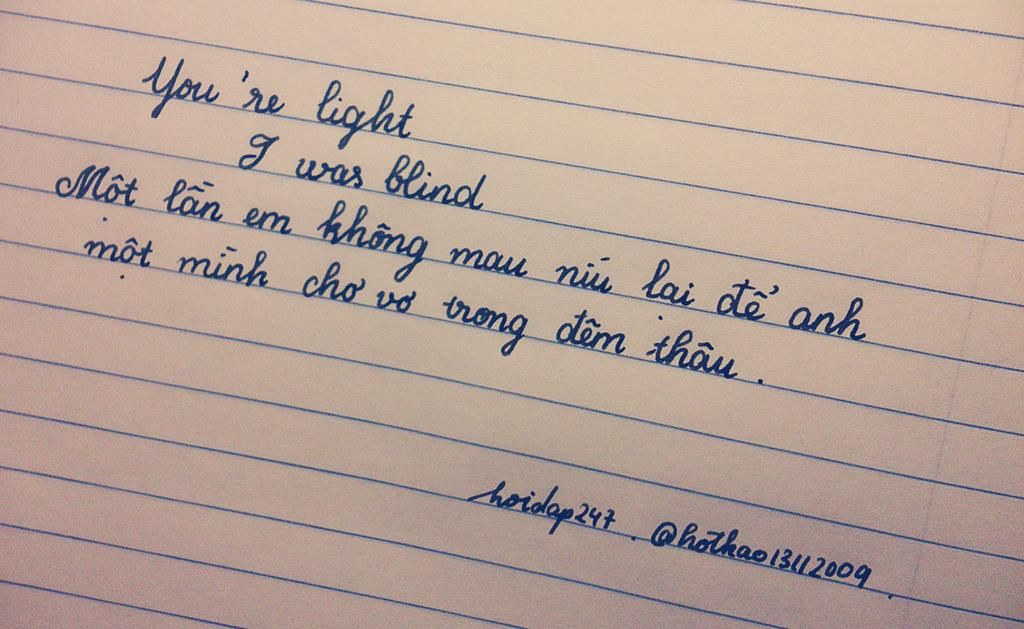 You're light
I was blind
Một lần em không mau níu lại để anh
một mình chơ vơ trong đêm thâu.
hoidap247. @hothao13112009.